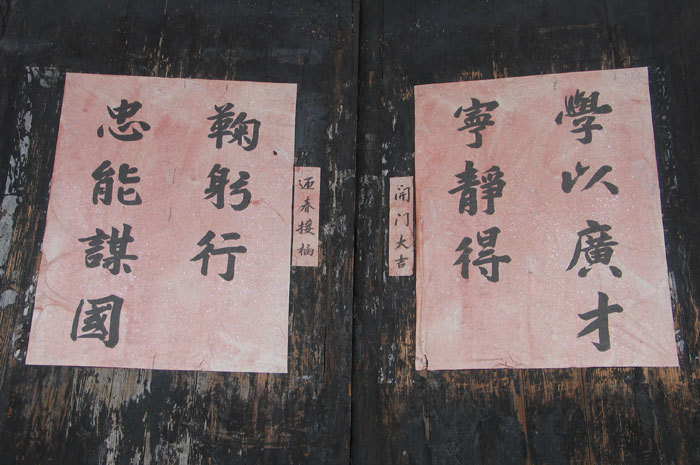 學以廣才
寧靜得
開门大吉
迎春接福
鞠躬行
忠能謀國